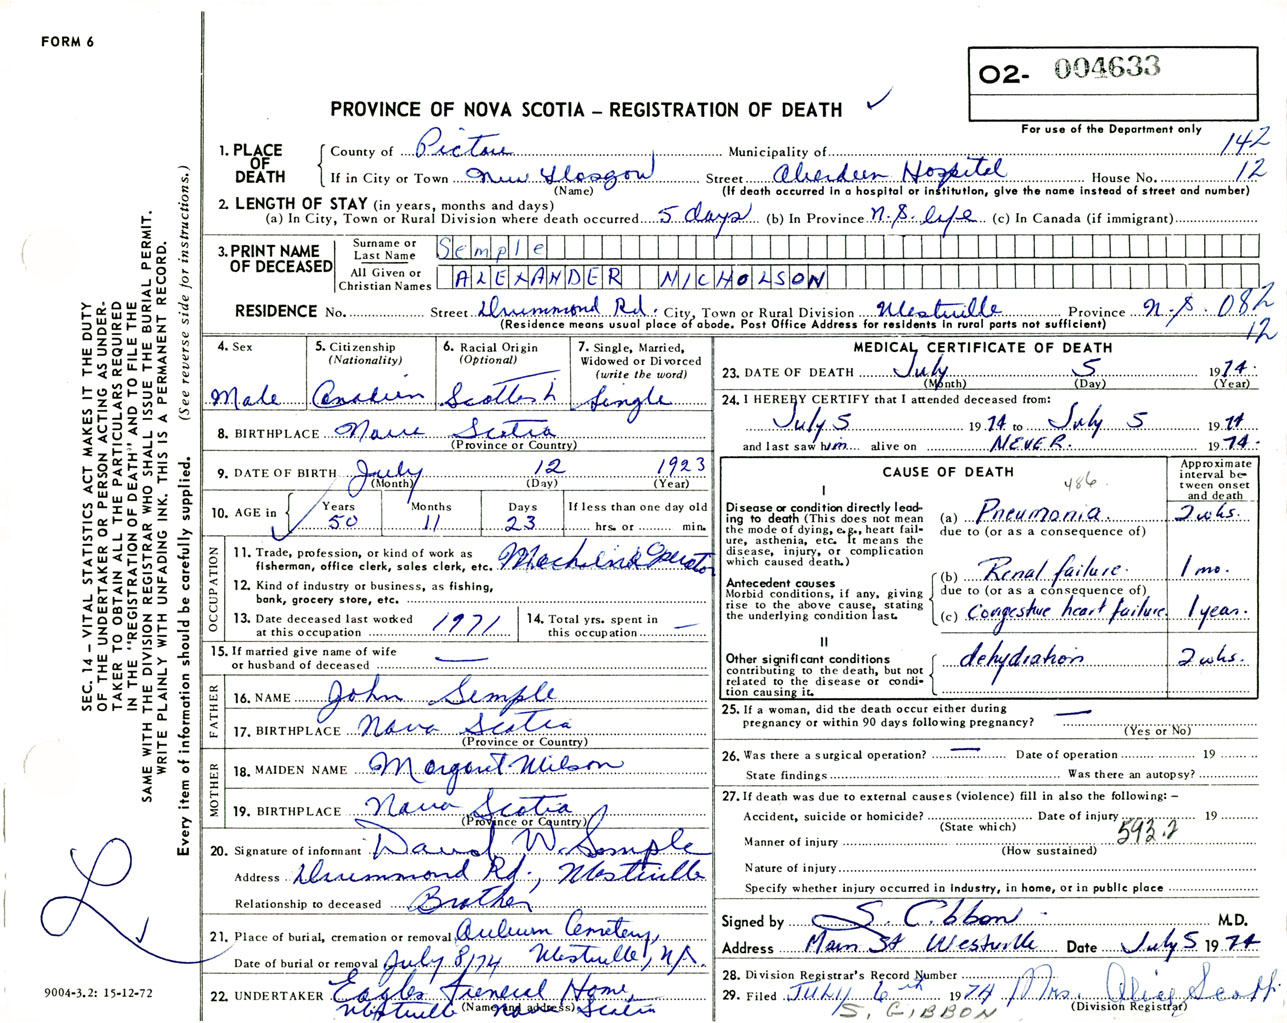 FORM 6
O2- 004633
PROVINCE OF NOVA SCOTIA – REGISTRATION OF DEATH ✓
For use of the Department only
142
12
1. PLACE OF DEATH
County of Pictou Municipality of
If in City or Town New Glasgow Street Aberdeen Hospital House No.
(Name) (If death occurred in a hospital or institution, give the name instead of street and number)
2. LENGTH OF STAY (in years, months and days)
(a) In City, Town or Rural Division where death occurred 5 days (b) In Province N.S. life (c) In Canada (if immigrant)
3. PRINT NAME OF DECEASED
Surname or Last Name Semple
All Given or Christian Names ALEXANDER NICHOLSON
RESIDENCE No. Street Drummond Rd. City, Town or Rural Division Westville Province N.S. 082
(Residence means usual place of abode. Post Office Address for residents in rural parts not sufficient) 12
4. Sex
Male
5. Citizenship
(Nationality)
Canadian
6. Racial Origin
(Optional)
Scottish
7. Single, Married,
Widowed or Divorced
(write the word)
Single
8. BIRTHPLACE Nova Scotia
(Province or Country)
9. DATE OF BIRTH July 12 1923
(Month) (Day) (Year)
10. AGE in Years Months Days If less than one day old
50 11 23 hrs. or min.
OCCUPATION
11. Trade, profession, or kind of work as
fisherman, office clerk, sales clerk, etc. Machine Operator
12. Kind of industry or business, as fishing,
bank, grocery store, etc.
13. Date deceased last worked
at this occupation 1971
14. Total yrs. spent in
this occupation —
15. If married give name of wife
or husband of deceased —
FATHER
16. NAME John Semple
17. BIRTHPLACE Nova Scotia
(Province or Country)
MOTHER
18. MAIDEN NAME Margaret Wilson
19. BIRTHPLACE Nova Scotia
(Province or Country)
20. Signature of informant David W. Semple
Address Drummond Rd., Westville
Relationship to deceased Brother
21. Place of burial, cremation or removal Auburn Cemetery,
Date of burial or removal July 8/74 Westville, N.S.
22. UNDERTAKER Eagles Funeral Home,
(Name and address)
Westville Nova Scotia
MEDICAL CERTIFICATE OF DEATH
23. DATE OF DEATH July 5 1974.
(Month) (Day) (Year)
24. I HEREBY CERTIFY that I attended deceased from:
July 5 1974 to July 5 1974
and last saw him alive on NEVER. 1974.
CAUSE OF DEATH
486
Approximate
interval be-
tween onset
and death
I
Disease or condition directly lead-
ing to death (This does not mean
the mode of dying, e.g., heart fail-
ure, asthenia, etc. It means the
disease, injury, or complication
which caused death.)
(a) Pneumonia. 2 wks.
due to (or as a consequence of)
Antecedent causes
Morbid conditions, if any, giving
rise to the above cause, stating
the underlying condition last.
(b) Renal failure. 1 mo.
due to (or as a consequence of)
(c) Congestive heart failure. 1 year.
II
Other significant conditions
contributing to the death, but not
related to the disease or condi-
tion causing it.
dehydration 2 wks.
25. If a woman, did the death occur either during
pregnancy or within 90 days following pregnancy? —
(Yes or No)
26. Was there a surgical operation? — Date of operation 19
State findings Was there an autopsy?
27. If death was due to external causes (violence) fill in also the following: –
Accident, suicide or homicide? Date of injury 19
(State which) 593.2
Manner of injury
(How sustained)
Nature of injury
Specify whether injury occurred in industry, in home, or in public place
Signed by S. Gibbon M.D.
Address Main St Westville Date July 5 1974
28. Division Registrar's Record Number
29. Filed JULY 6th 1974 Mrs. Alice Scott
(Division Registrar)
S. GIBBON
SEC. 14 – VITAL STATISTICS ACT MAKES IT THE DUTY
OF THE UNDERTAKER OR PERSON ACTING AS UNDER-
TAKER TO OBTAIN ALL THE PARTICULARS REQUIRED
IN THE "REGISTRATION OF DEATH" AND TO FILE THE
SAME WITH THE DIVISION REGISTRAR WHO SHALL ISSUE THE BURIAL PERMIT.
WRITE PLAINLY WITH UNFADING INK. THIS IS A PERMANENT RECORD.
Every item of information should be carefully supplied. (See reverse side for instructions.)
9004-3.2: 15-12-72